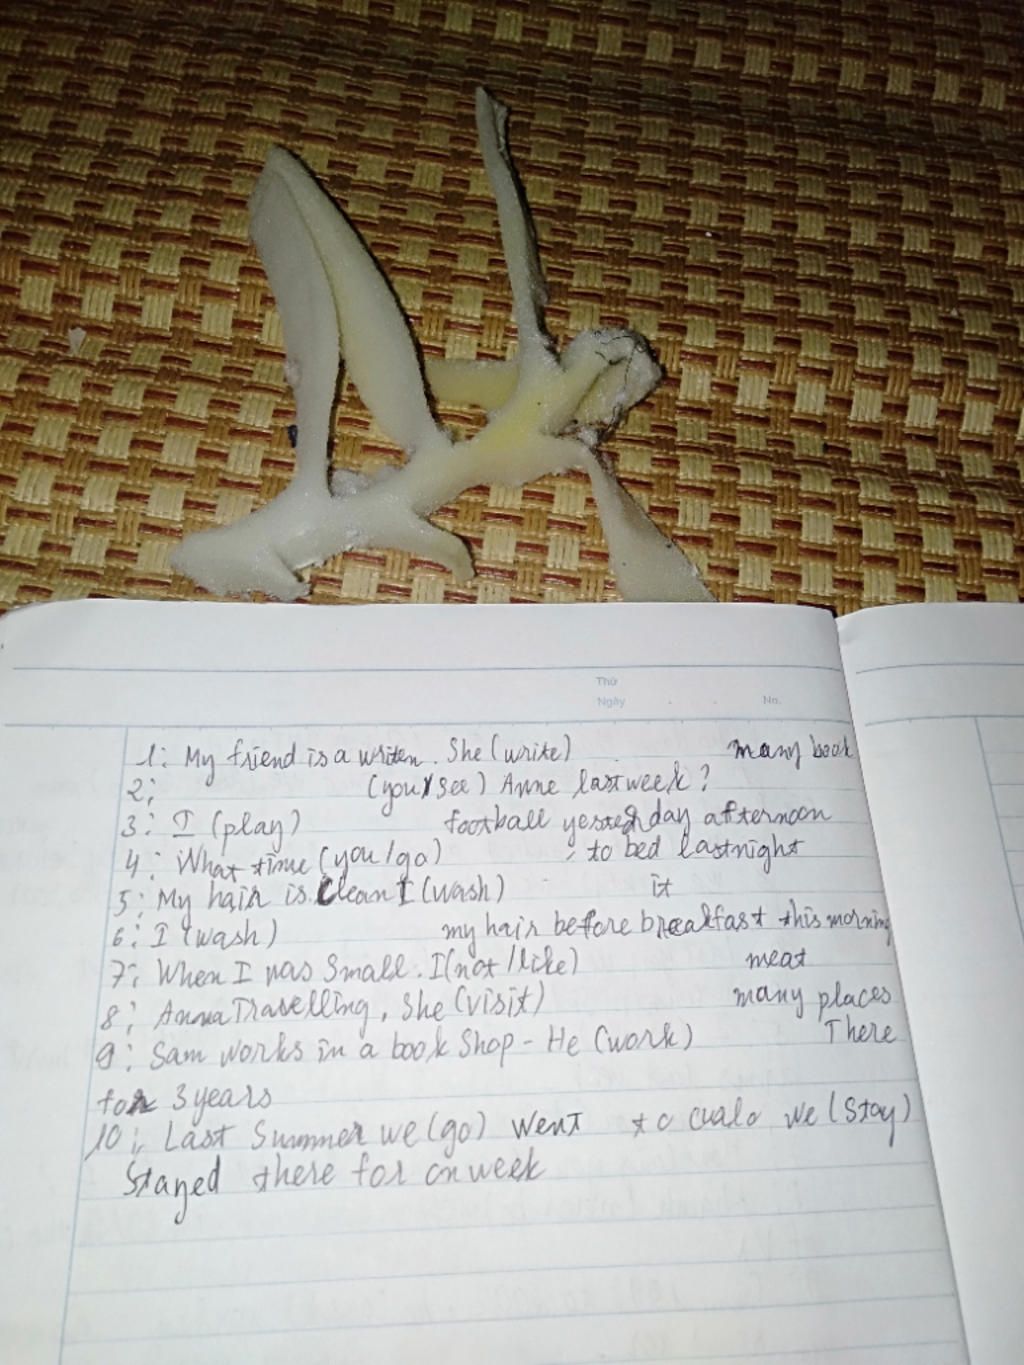 Thứ
Ngày . . No.
1: My friend is a writen. She (write) many book
2: (you/see) Anne last week?
3: I (play) football yesterday afternoon
4: What time (you/go) to bed lastnight
5: My hair is Clean I (wash) it
6: I (wash) my hair before breakfast this morning
7: When I was Small. I (not/like) meat
8: Anna Travelling, She (visit) many places
9: Sam works in a book Shop - He (work) There
for 3 years
10: Last Summer we (go) Went to we (Stay)
Stayed there for on week